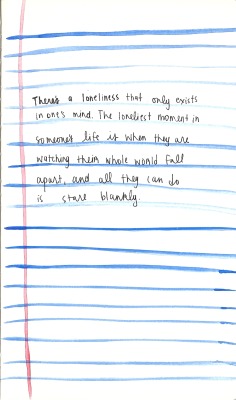 There's a loneliness that only exists
in one's mind. The loneliest moment in
someone's life is when they are
watching their whole world fall
apart, and all they can do
is stare blankly.